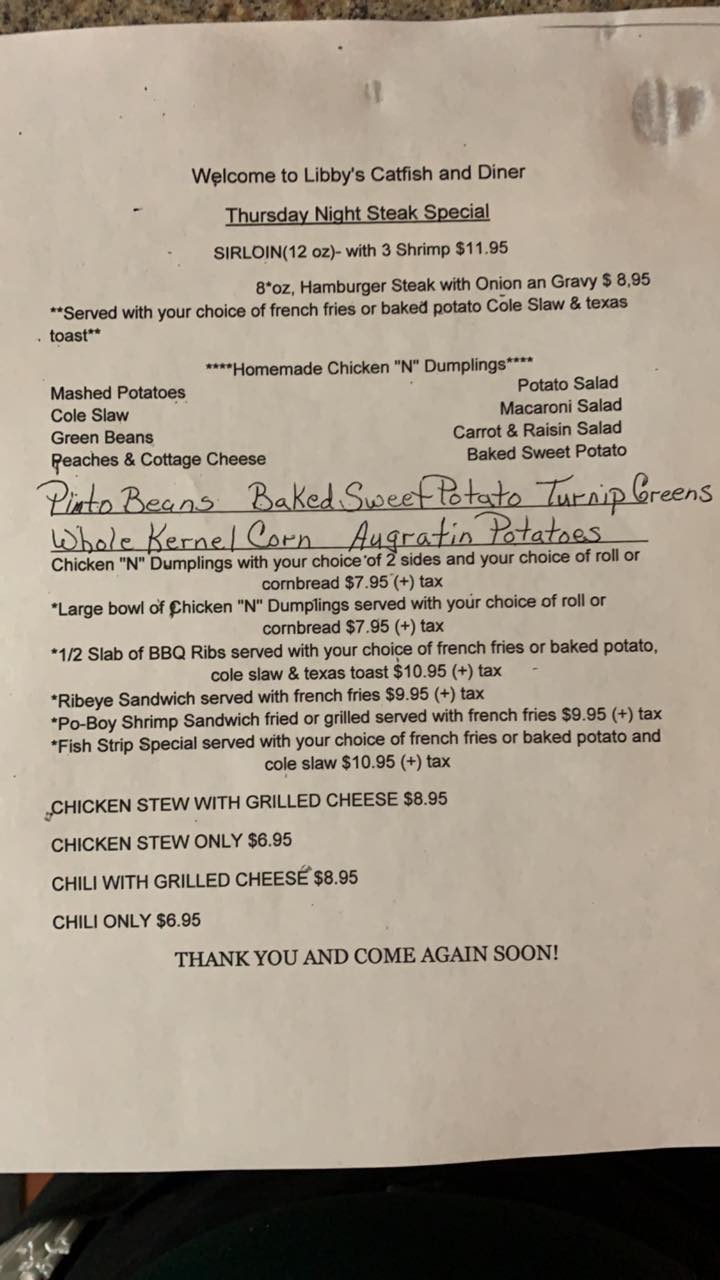 Welcome to Libby's Catfish and Diner
Thursday Night Steak Special
SIRLOIN(12 oz)- with 3 Shrimp $11.95
8*oz, Hamburger Steak with Onion an Gravy $ 8,95
**Served with your choice of french fries or baked potato Cole Slaw & texas
toast**
****Homemade Chicken "N" Dumplings****
Mashed Potatoes Potato Salad
Cole Slaw Macaroni Salad
Green Beans Carrot & Raisin Salad
Peaches & Cottage Cheese Baked Sweet Potato
Pinto Beans Baked Sweet Potato Turnip Greens
Whole Kernel Corn Augratin Potatoes
Chicken "N" Dumplings with your choice of 2 sides and your choice of roll or
cornbread $7.95 (+) tax
*Large bowl of Chicken "N" Dumplings served with your choice of roll or
cornbread $7.95 (+) tax
*1/2 Slab of BBQ Ribs served with your choice of french fries or baked potato,
cole slaw & texas toast $10.95 (+) tax
*Ribeye Sandwich served with french fries $9.95 (+) tax
*Po-Boy Shrimp Sandwich fried or grilled served with french fries $9.95 (+) tax
*Fish Strip Special served with your choice of french fries or baked potato and
cole slaw $10.95 (+) tax
CHICKEN STEW WITH GRILLED CHEESE $8.95
CHICKEN STEW ONLY $6.95
CHILI WITH GRILLED CHEESE $8.95
CHILI ONLY $6.95
THANK YOU AND COME AGAIN SOON!